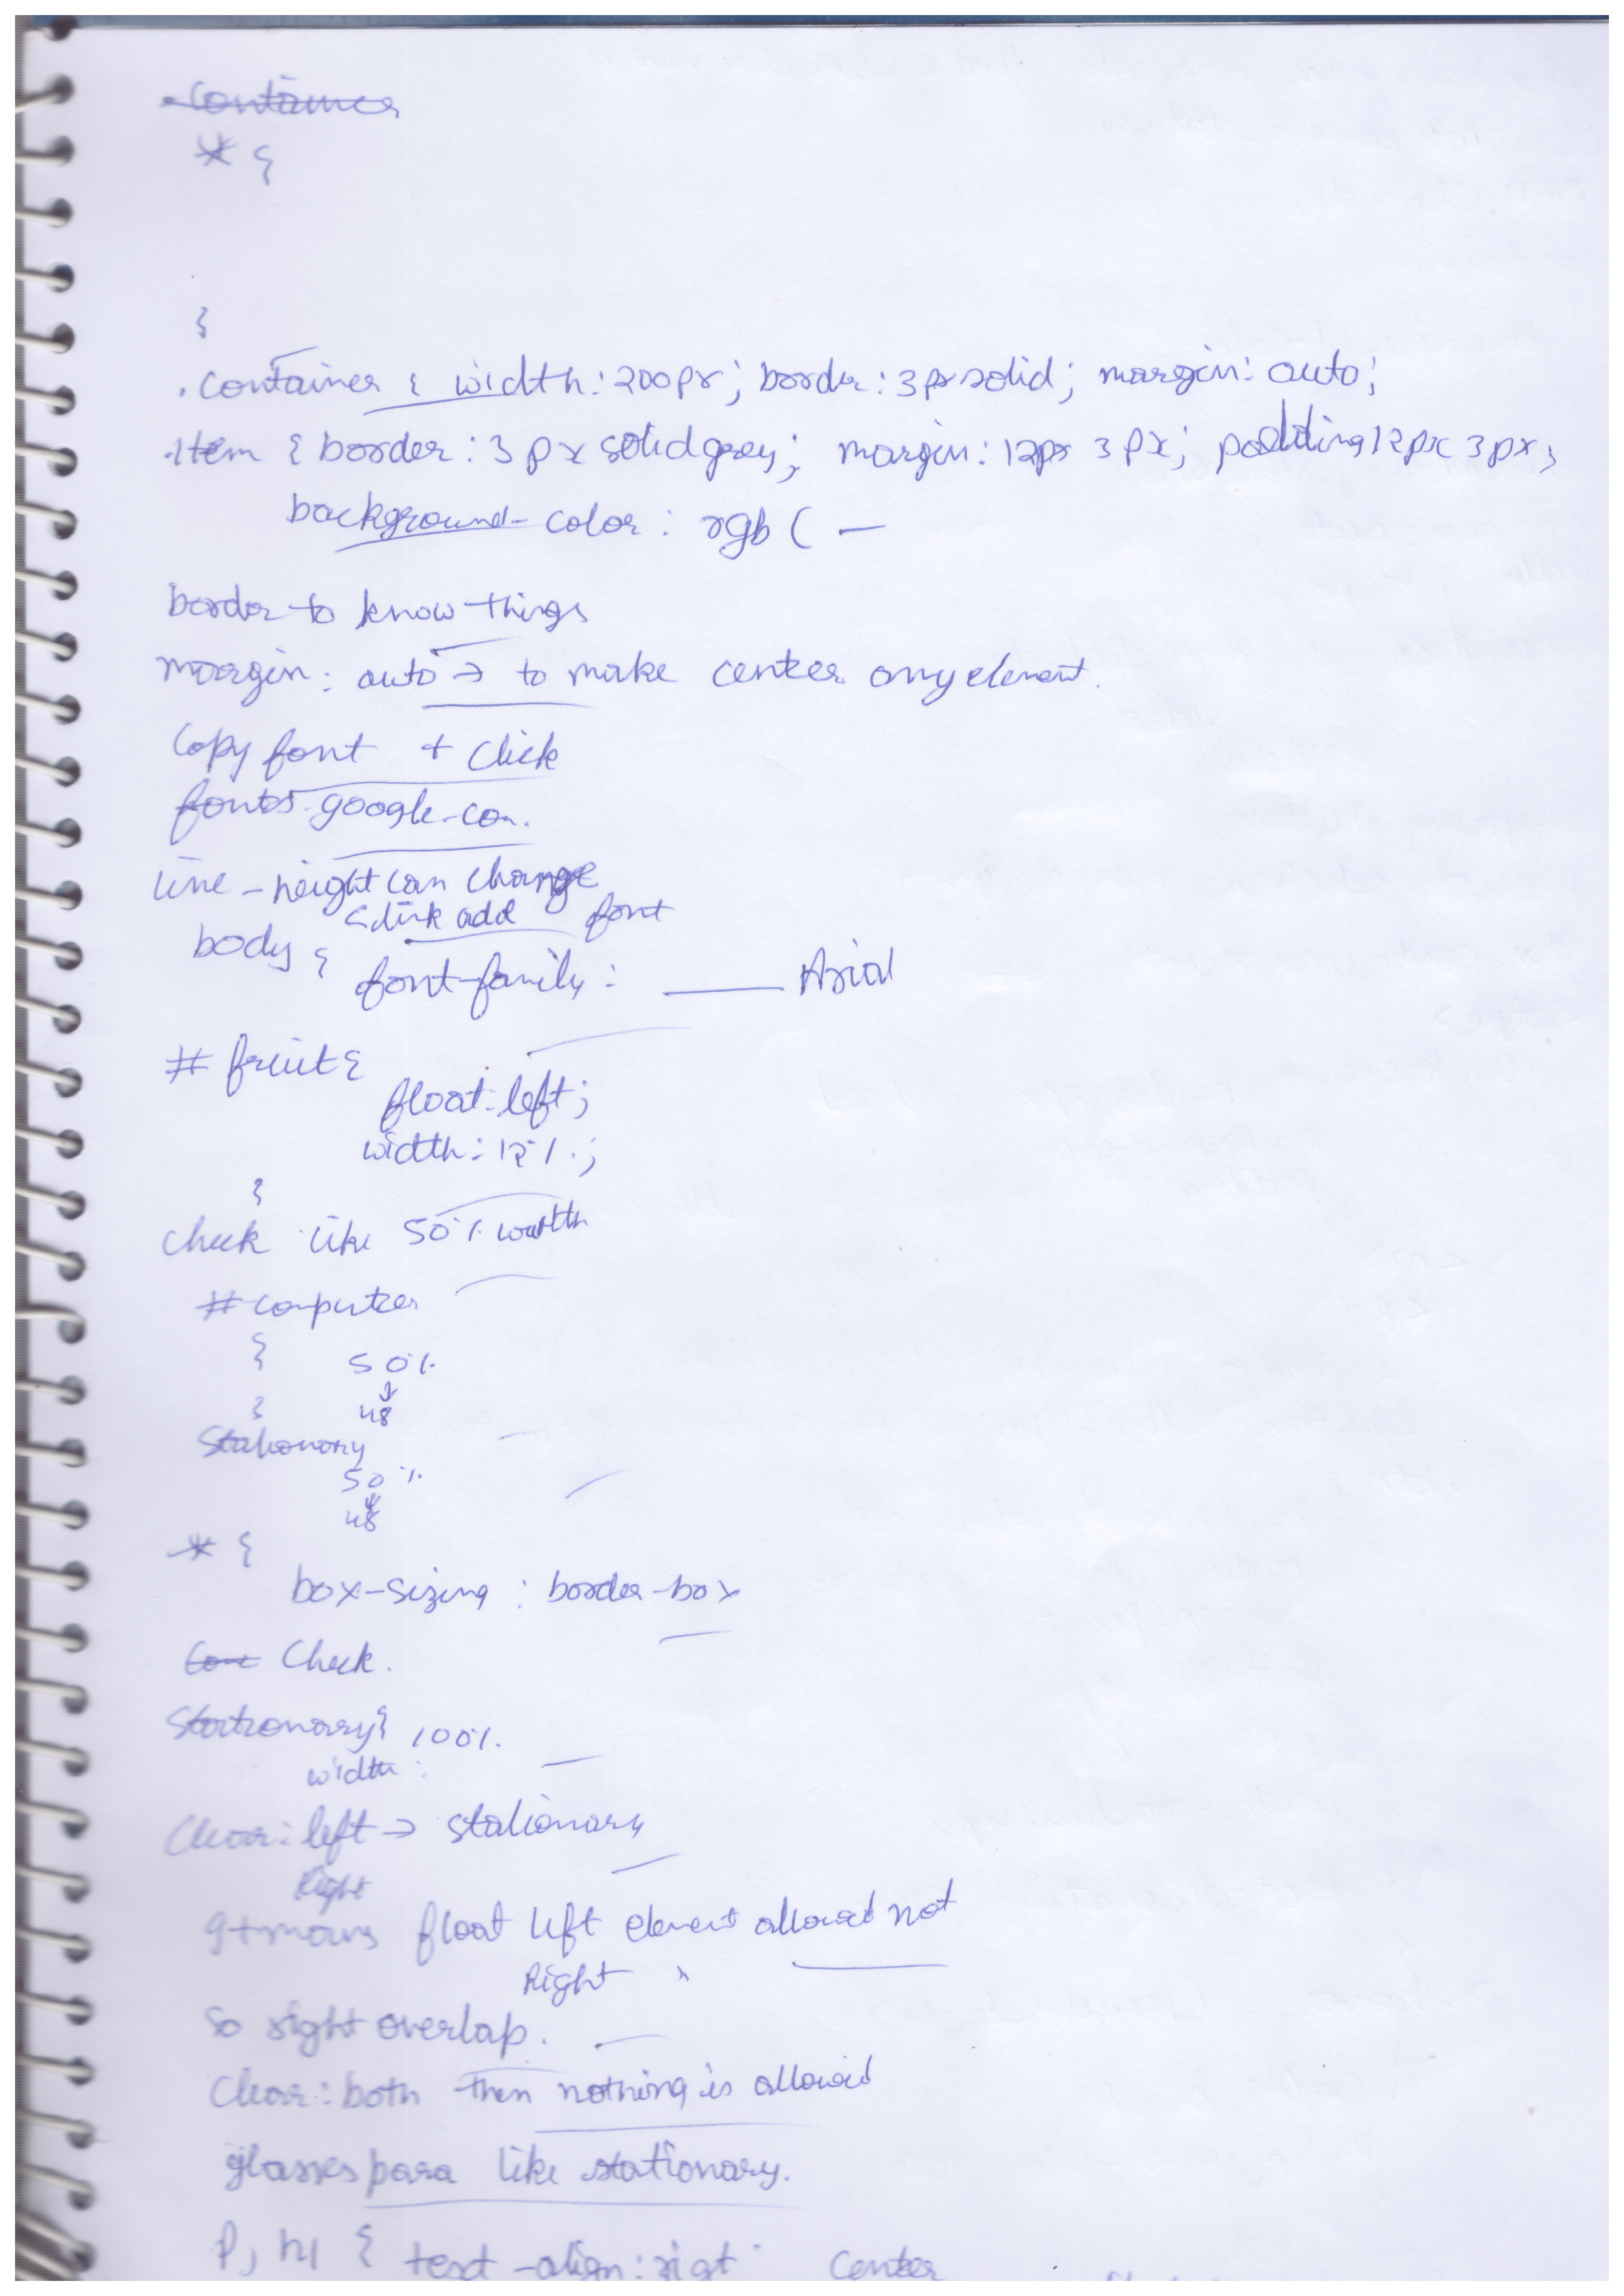 .container
* {
}
.container { width: 200px; border: 3px solid; margin: auto;
.item { border: 3px solid grey; margin: 12px 3px; padding 12px 3px;
background-color: rgb ( —
border to know things
margin: auto → to make center any element.
Copy font + click
fonts.google.com.
line-height can change
<link add font
body { font-family: ____ Arial
# fruit {
float: left;
width: 12%.;
}
check like 50% width
# computer
{ 50%
↓
} 48
Stationary
50%
↓
48
* {
box-sizing : border-box
Check.
Stationary { 100%.
width :
Clear: left → stationary
Right
It means float left element allowed not
Right "
so right overlap.
Clear: both then nothing is allowed
glasses para like stationary.
P, h1 { text-align: rigt center